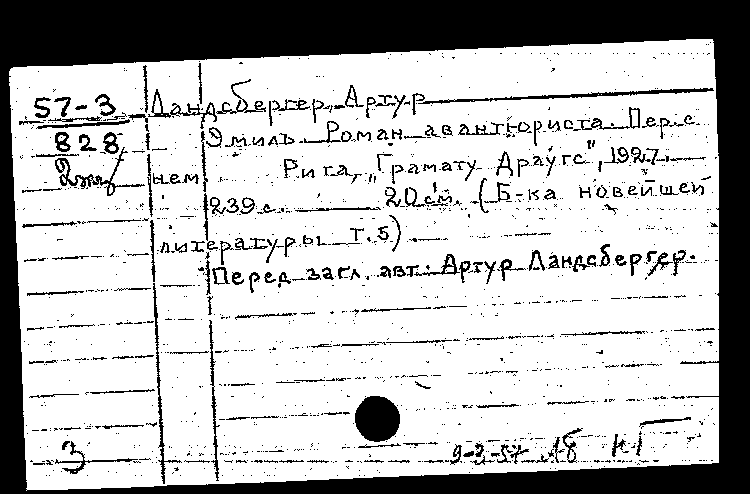 57-3 Ландсбергер, Артур
828 Эмиль. Роман авантюриста. Пер. с
нем. Рига, "Грамату Драугс", 1927.
239 с. 20 см. (Б-ка новейшей
литературы т. 5)
Перед загл. авт.: Артур Ландсбергер.
3 9-3-57 Аб КГ